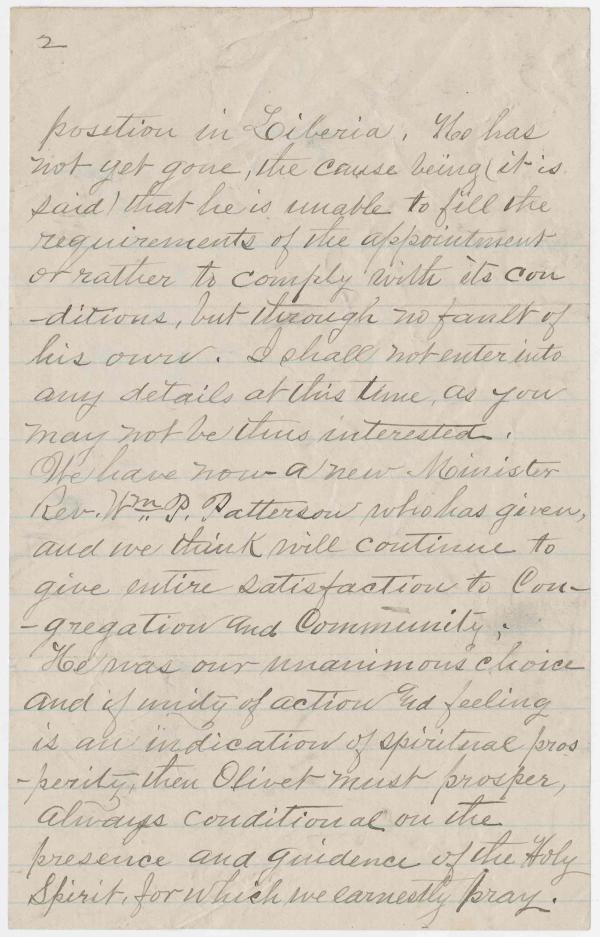 2
position in Liberia. He has
not yet gone, the cause being (it is
said) that he is unable to fill the
requirements of the appointment
or rather to comply with its con
-ditions, but through no fault of
his own. I shall not enter into
any details at this time, as you
may not be thus interested.
We have now a new Minister
Rev. Wm. P. Patterson who has given,
and we think will continue to
give entire satisfaction to Con-
-gregation and Community;
He was our unanimous choice
and if unity of action and feeling
is an indication of spiritual pros
-perity, then Olivet must prosper,
always conditional on the
presence and guidence of the Holy
Spirit, for which we earnestly pray.